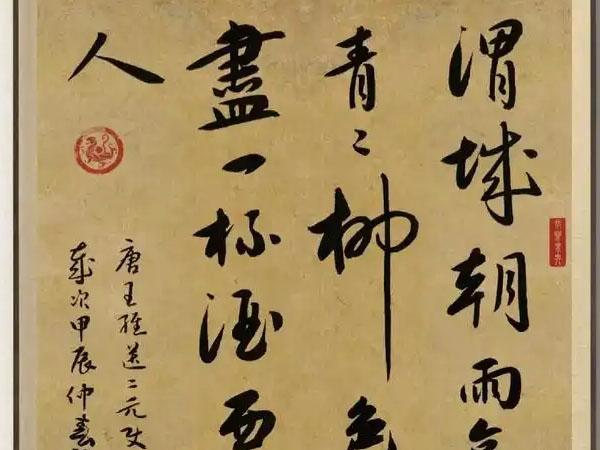 渭城朝雨
青〻柳色
盡一杯酒西
人
唐王維送二元使
歲次甲辰仲春